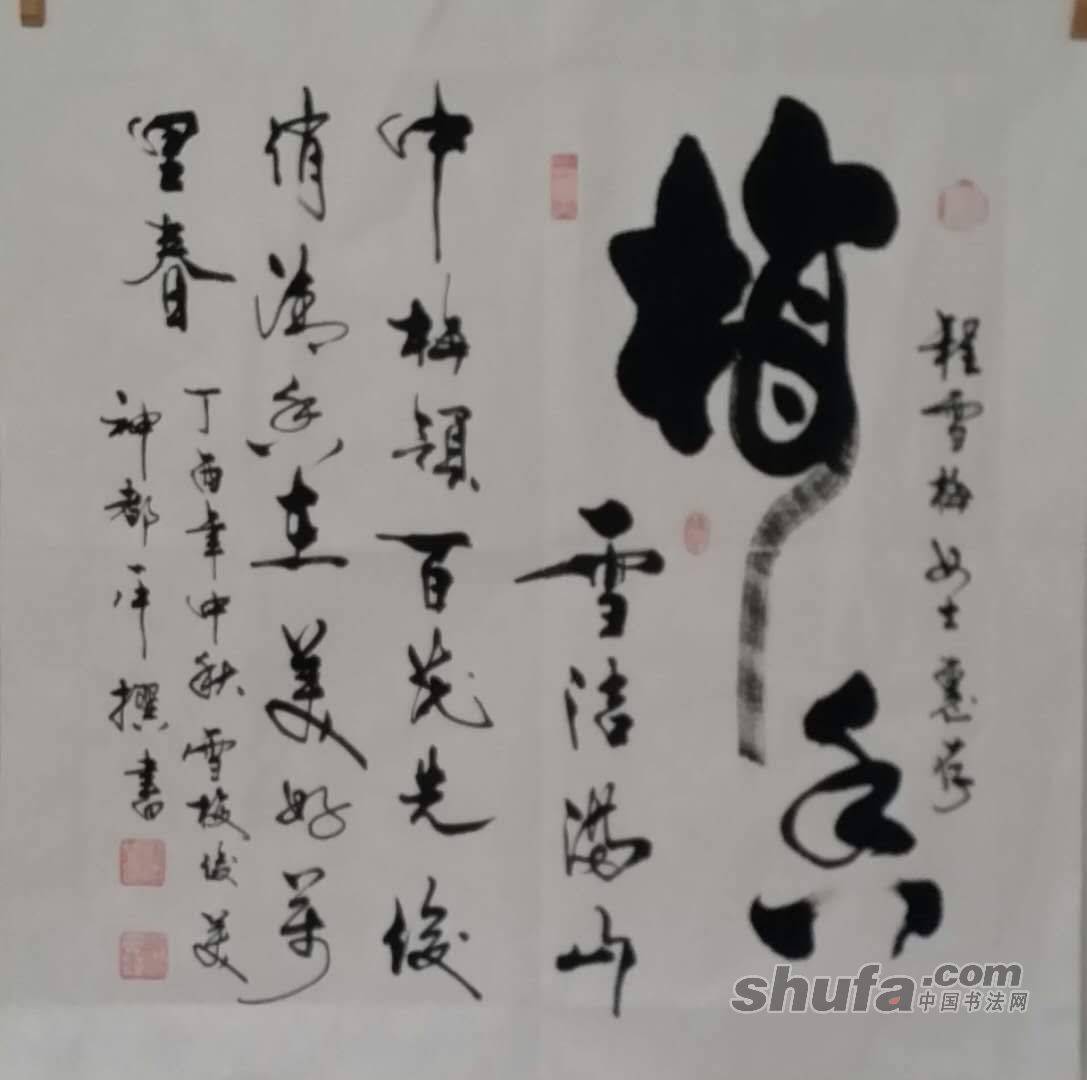 程雪梅女士惠存
梅香
雪洁满山
中梅颖百花先俊
俏清香在美好萬
里春
丁酉年中秋雪梅俊美
神都撰書
shufa.com
中国书法网